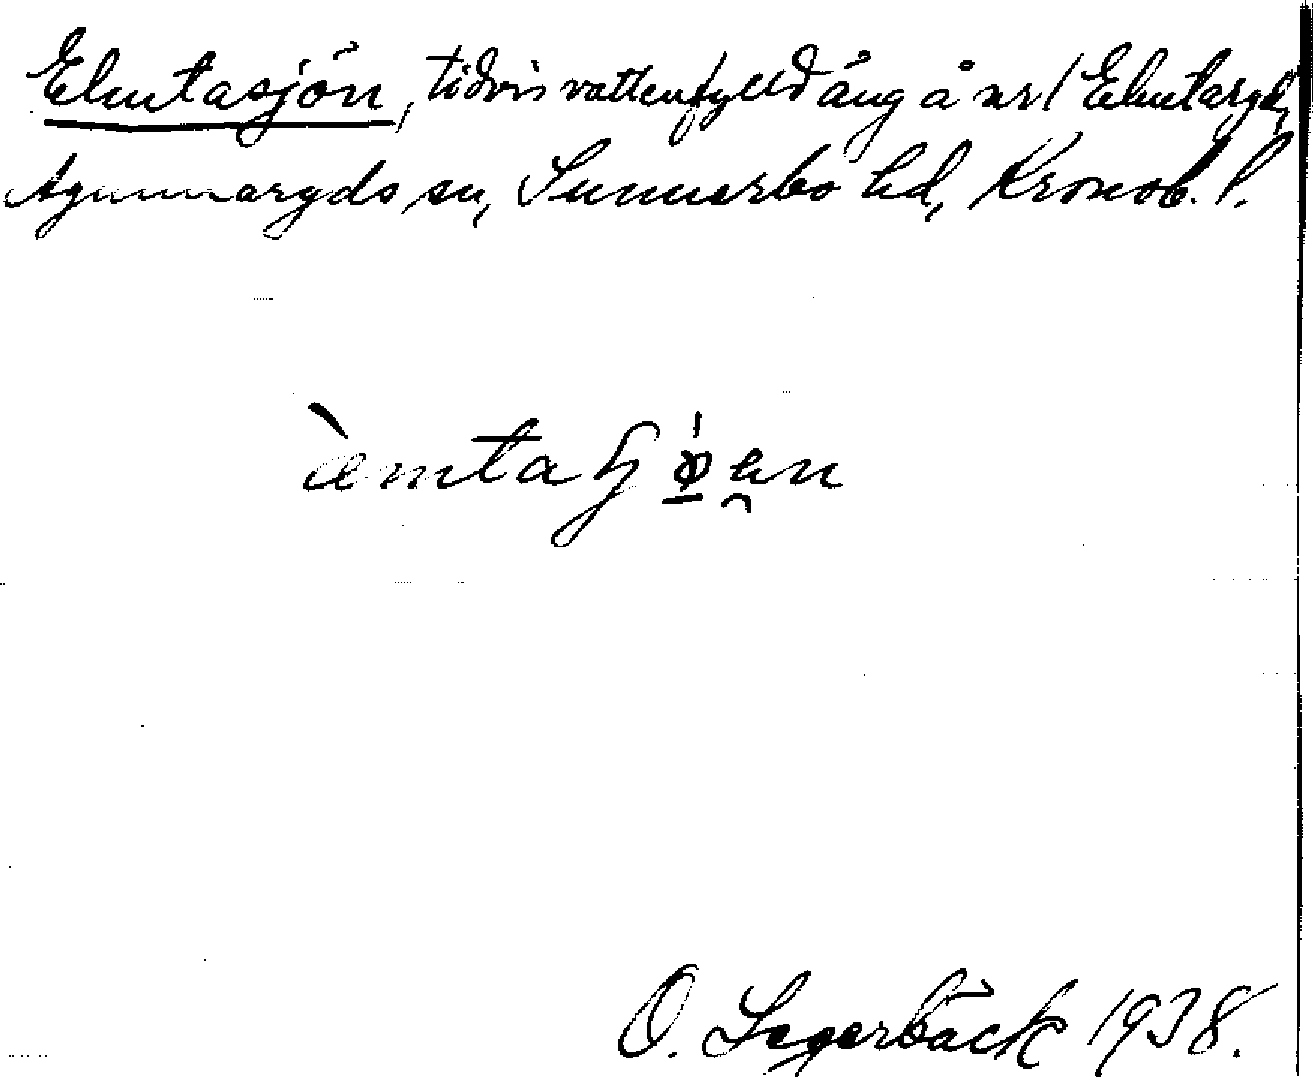 Elmtasjön, tidvis vattenfylld äng å nr 1 Elmtaryd,
Agunnaryds sn, Sunnerbo hd, Kronob. l.
O. Segerbäck 1938.